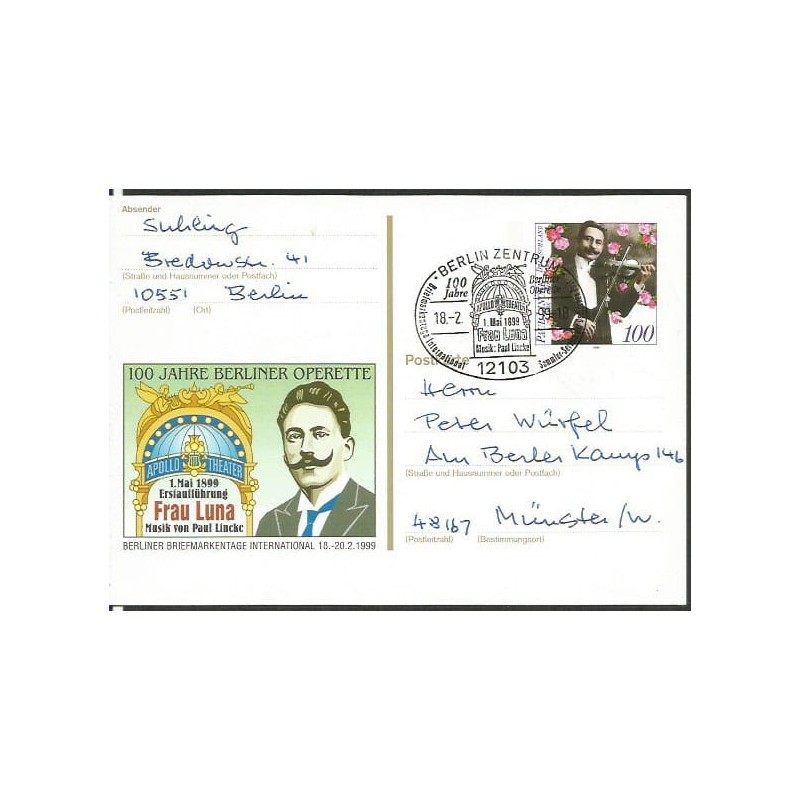 Absender
Suhling
Bredowstr. 41
(Straße und Hausnummer oder Postfach)
10551 Berlin
(Postleitzahl) (Ort)
100 JAHRE BERLINER OPERETTE
APOLLO THEATER
1. Mai 1899
Erstaufführung
Frau Luna
Musik von Paul Lincke
BERLINER BRIEFMARKENTAGE INTERNATIONAL 18.-20.2.1999
BERLIN ZENTRUM
100 Jahre
Berliner Operette
APOLLO THEATER
18.-2.
99-18
1. Mai 1899
Frau Luna
Musik: Paul Lincke
International
12103
100
Postkarte
Herrn
Peter Würfel
Am Berler Kamp 146
(Straße und Hausnummer oder Postfach)
48167 Münster/W.
(Postleitzahl) (Bestimmungsort)